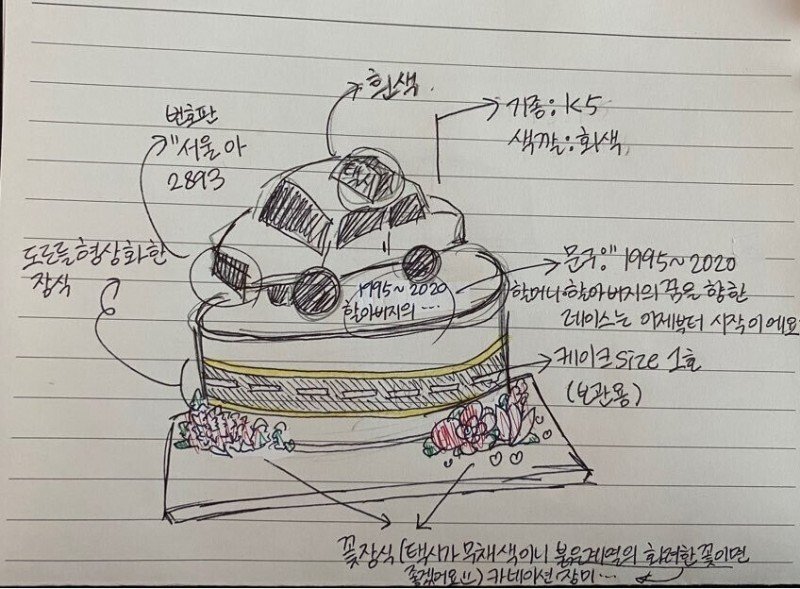 흰색
기종: K5
색깔: 회색
번호판
"서울 아
2893
택시
도로를 형상화한
장식
문구: "1995~2020
할머니 할아버지의 꿈을 향한
레이스는 이제부터 시작이에요
1995~2020
할아버지의 ...
케이크 size 1호
(보관용)
꽃장식 (택시가 무채색이니 붉은계열의 화려한 꽃이면
좋겠어요!!) 카네이션 장미...